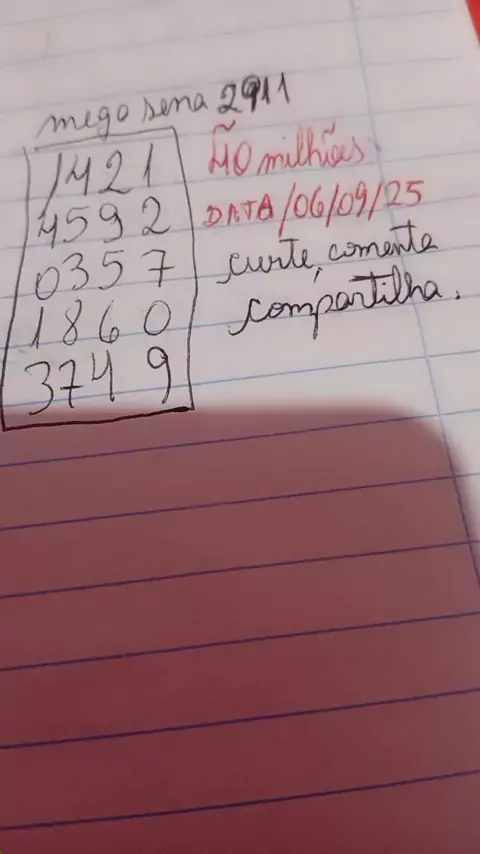 mega sena 2911
1421
4592
0357
1860
3749
40 milhões
DATA/06/09/25
curte, comenta
compartilha.